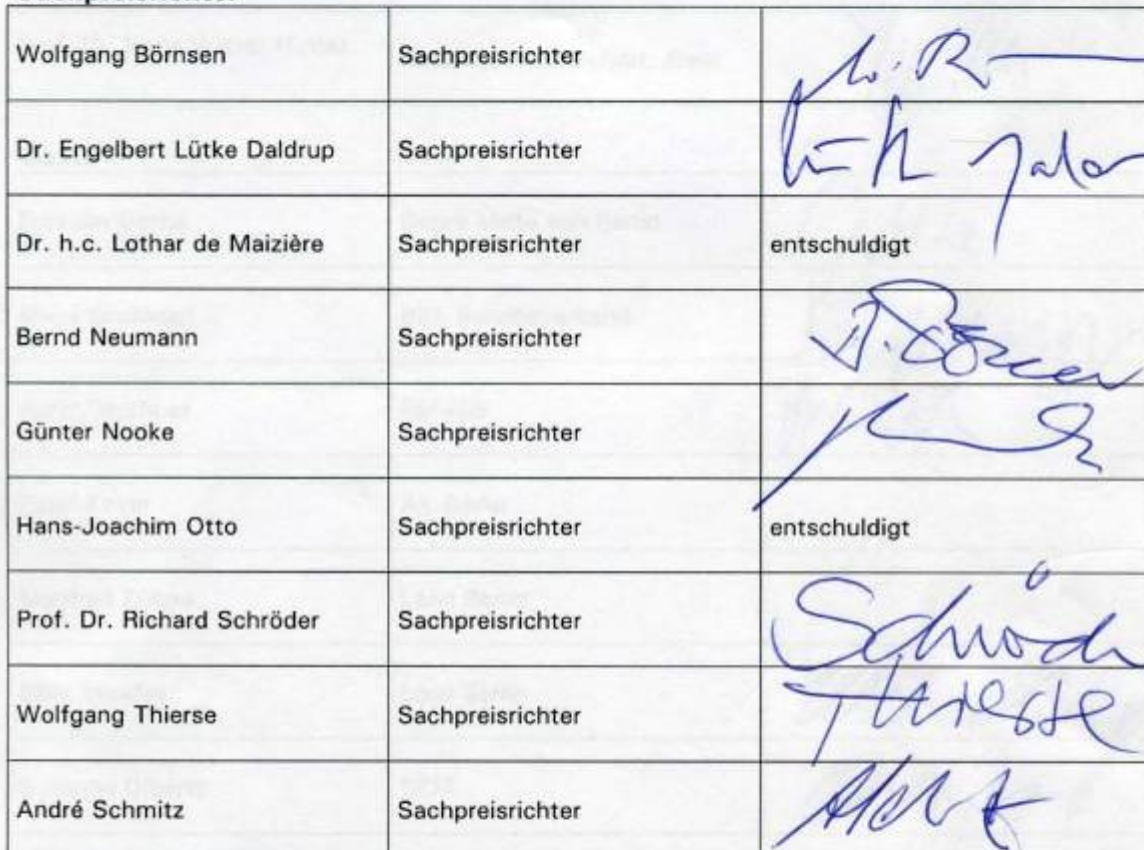 Wolfgang Börnsen Sachpreisrichter
Dr. Engelbert Lütke Daldrup Sachpreisrichter
Dr. h.c. Lothar de Maizière Sachpreisrichter entschuldigt
Bernd Neumann Sachpreisrichter
Günter Nooke Sachpreisrichter
Hans-Joachim Otto Sachpreisrichter entschuldigt
Prof. Dr. Richard Schröder Sachpreisrichter Schröder
Wolfgang Thierse Sachpreisrichter Thierse
André Schmitz Sachpreisrichter